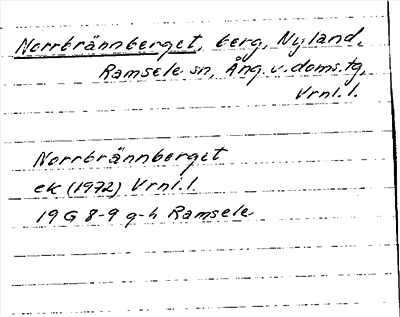 Norrbrännberget, berg, Nyland,
Ramsele sn, Ång. v. doms. tg,
Vrnl. l.
Norrbrännberget
ek (1972) Vrnl. l.
19 G 8-9 g-h Ramsele